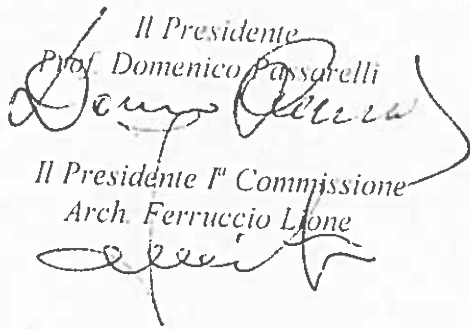 Il Presidente
Prof. Domenico Passarelli
Il Presidente Iª Commissione
Arch. Ferruccio Lione